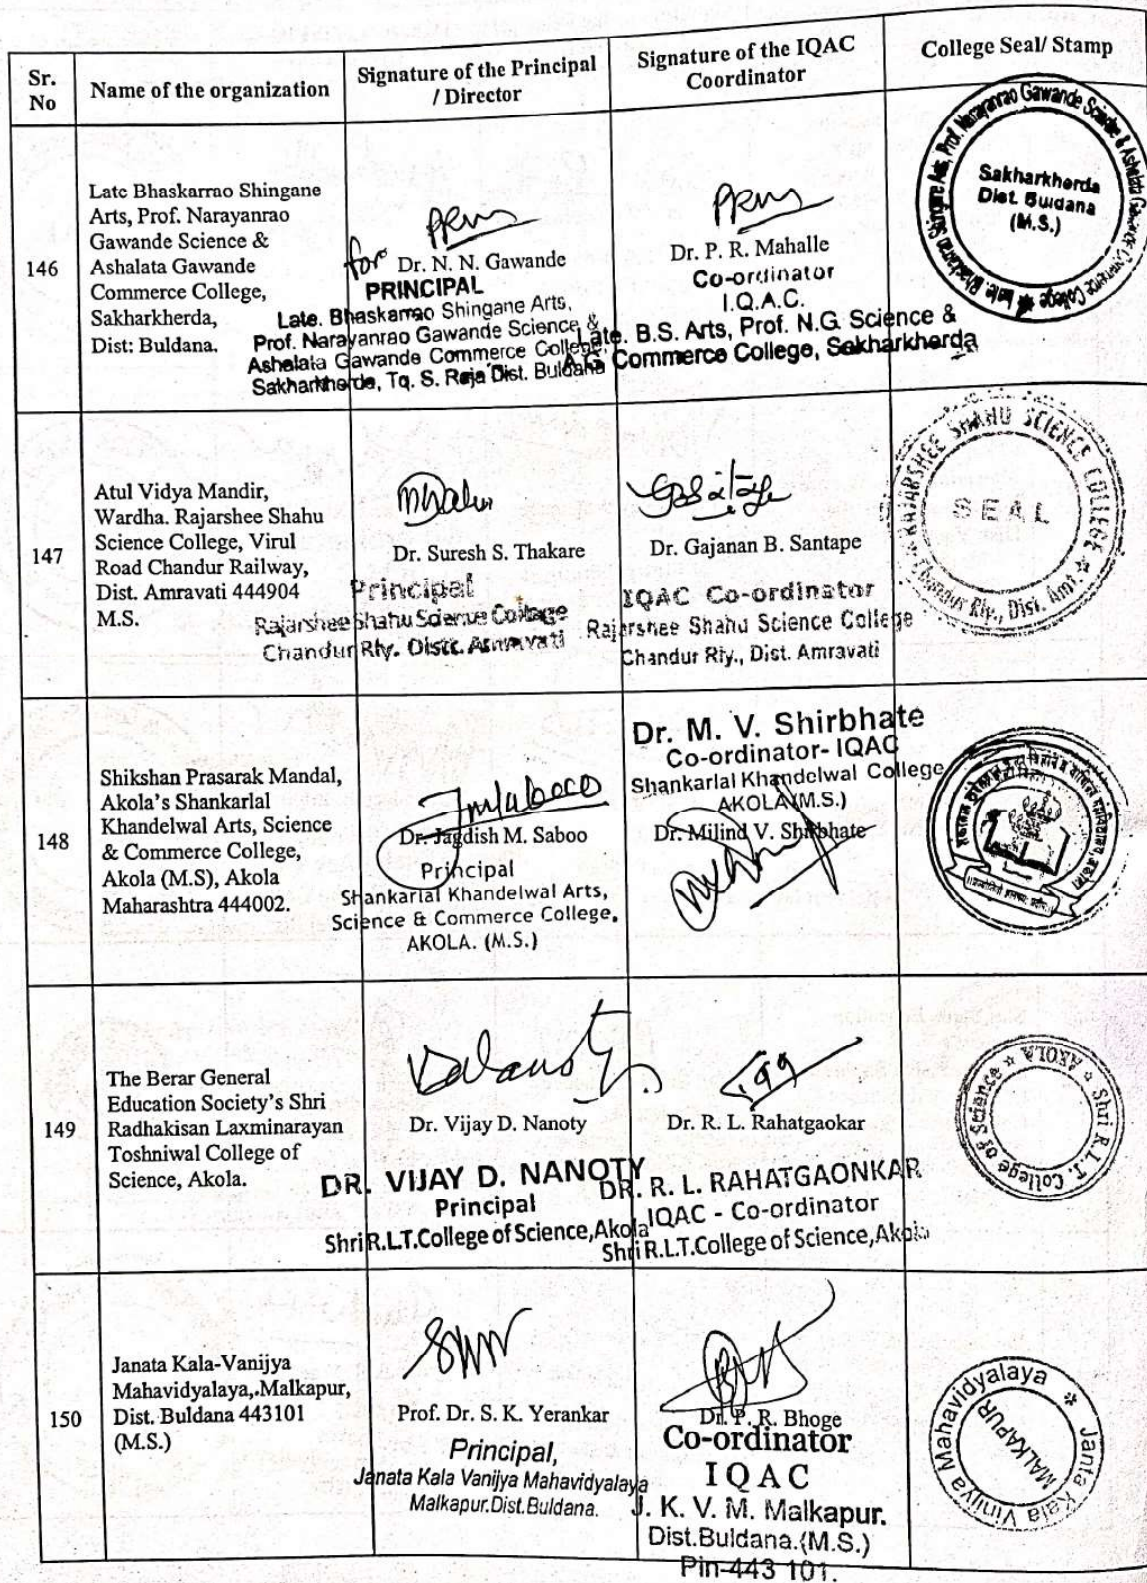 Sr. No
Name of the organization
Signature of the Principal / Director
Signature of the IQAC Coordinator
College Seal/ Stamp
146
Late Bhaskarrao Shingane
Arts, Prof. Narayanrao
Gawande Science &
Ashalata Gawande
Commerce College,
Sakharkherda,
Dist: Buldana.
for
Dr. N. N. Gawande
PRINCIPAL
Late. Bhaskarrao Shingane Arts,
Prof. Narayanrao Gawande Science &
Ashalata Gawande Commerce College,
Sakharkherda, Tq. S. Raja Dist. Buldana
Dr. P. R. Mahalle
Co-ordinator
I.Q.A.C.
Late. B.S. Arts, Prof. N.G. Science &
A.G. Commerce College, Sakharkherda
Late. Bhaskarrao Shingane Arts, Prof. Narayanrao Gawande Science & Ashalata Gawande Commerce College
Sakharkherda
Dist. Buldana
(M.S.)
147
Atul Vidya Mandir,
Wardha. Rajarshee Shahu
Science College, Virul
Road Chandur Railway,
Dist. Amravati 444904
M.S.
Dr. Suresh S. Thakare
Principal
Rajarshee Shahu Science College
Chandur Rly. Distt. Amravati
Dr. Gajanan B. Santape
IQAC Co-ordinator
Rajarshee Shahu Science College
Chandur Rly., Dist. Amravati
RAJARSHEE SHAHU SCIENCE COLLEGE
SEAL
Chandur Rly., Dist. Amt.
148
Shikshan Prasarak Mandal,
Akola's Shankarlal
Khandelwal Arts, Science
& Commerce College,
Akola (M.S), Akola
Maharashtra 444002.
Dr. Jagdish M. Saboo
Principal
Shankarlal Khandelwal Arts,
Science & Commerce College,
AKOLA. (M.S.)
Dr. M. V. Shirbhate
Co-ordinator- IQAC
Shankarlal Khandelwal College
AKOLA (M.S.)
Dr. Milind V. Shirbhate
149
The Berar General
Education Society's Shri
Radhakisan Laxminarayan
Toshniwal College of
Science, Akola.
Dr. Vijay D. Nanoty
DR. VIJAY D. NANOTY
Principal
Shri R.L.T.College of Science,Akola
Dr. R. L. Rahatgaokar
DR. R. L. RAHATGAONKAR
IQAC - Co-ordinator
Shri R.L.T.College of Science,Akola
Shri R.L.T. College of Science ☆ AKOLA ☆
150
Janata Kala-Vanijya
Mahavidyalaya,.Malkapur,
Dist. Buldana 443101
(M.S.)
Prof. Dr. S. K. Yerankar
Principal,
Janata Kala Vanijya Mahavidyalaya
Malkapur.Dist.Buldana.
Dr. P. R. Bhoge
Co-ordinator
IQAC
J. K. V. M. Malkapur.
Dist.Buldana.(M.S.)
Pin-443 101.
Janta Kala Vinijya Mahavidyalaya
MALKAPUR